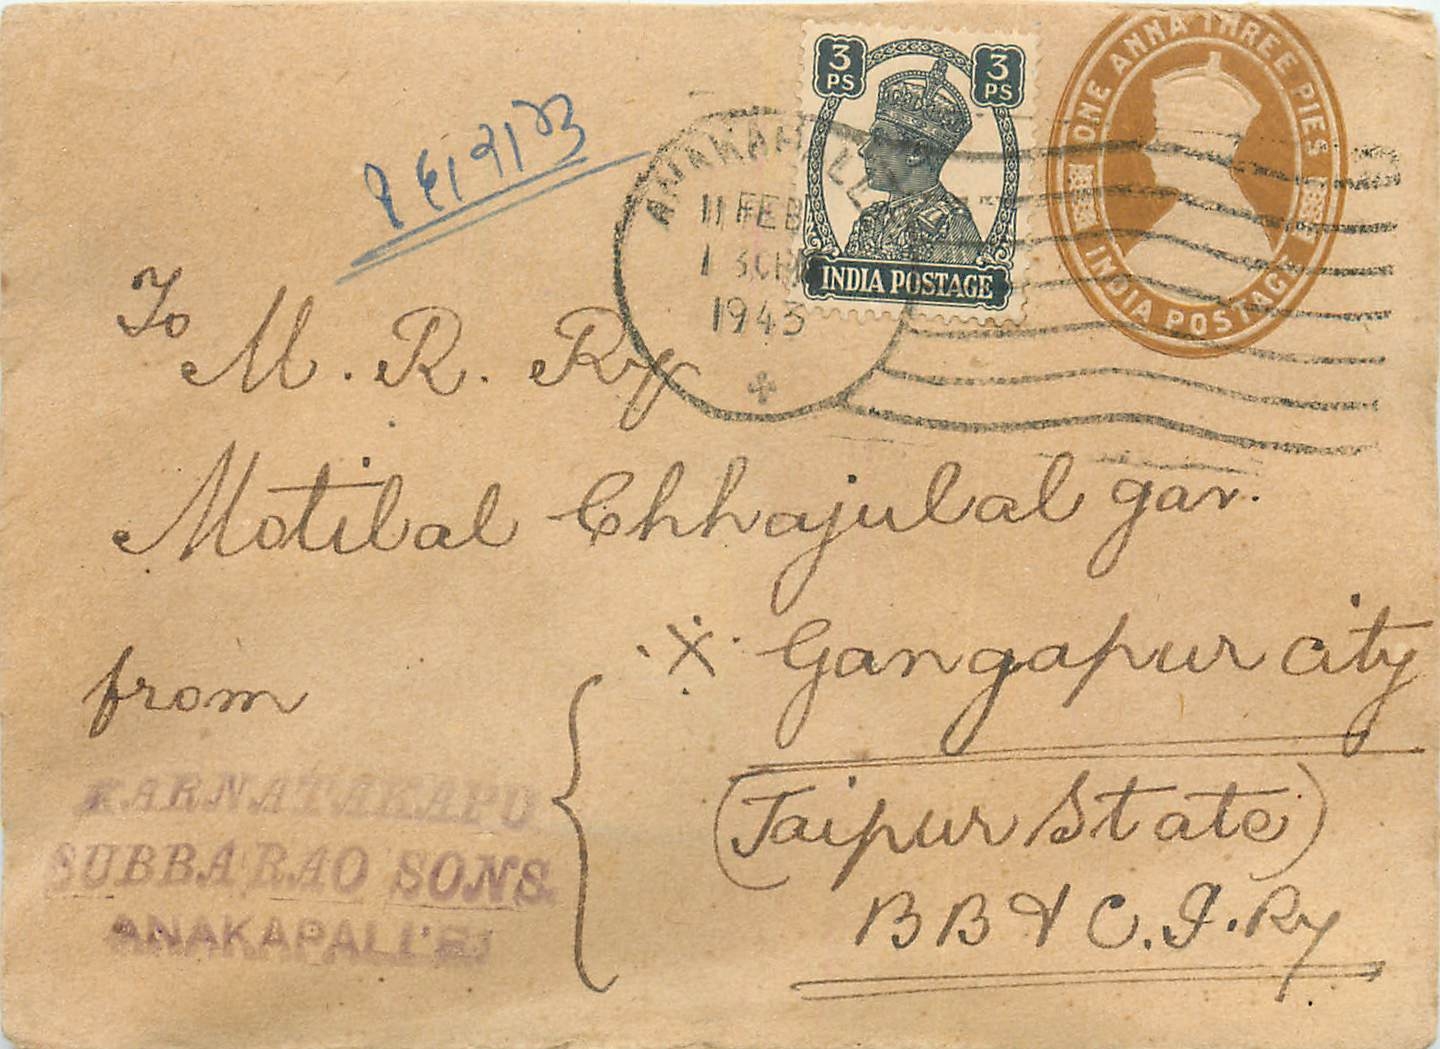 3 PS 3 PS
INDIA POSTAGE
ONE ANNA THREE PIES
INDIA POSTAGE
ANAKAPALLE
11 FEB
1943
To
M. R. Ry
Motilal Chhajulal gar.
Gangapur city
(Jaipur State)
B B & C. I. Ry
from
KARNATAKAPU
SUBBA RAO SONS.
ANAKAPALLE